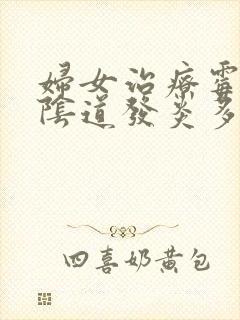 婦女治療霉
陰道發炎多
四喜奶黄包